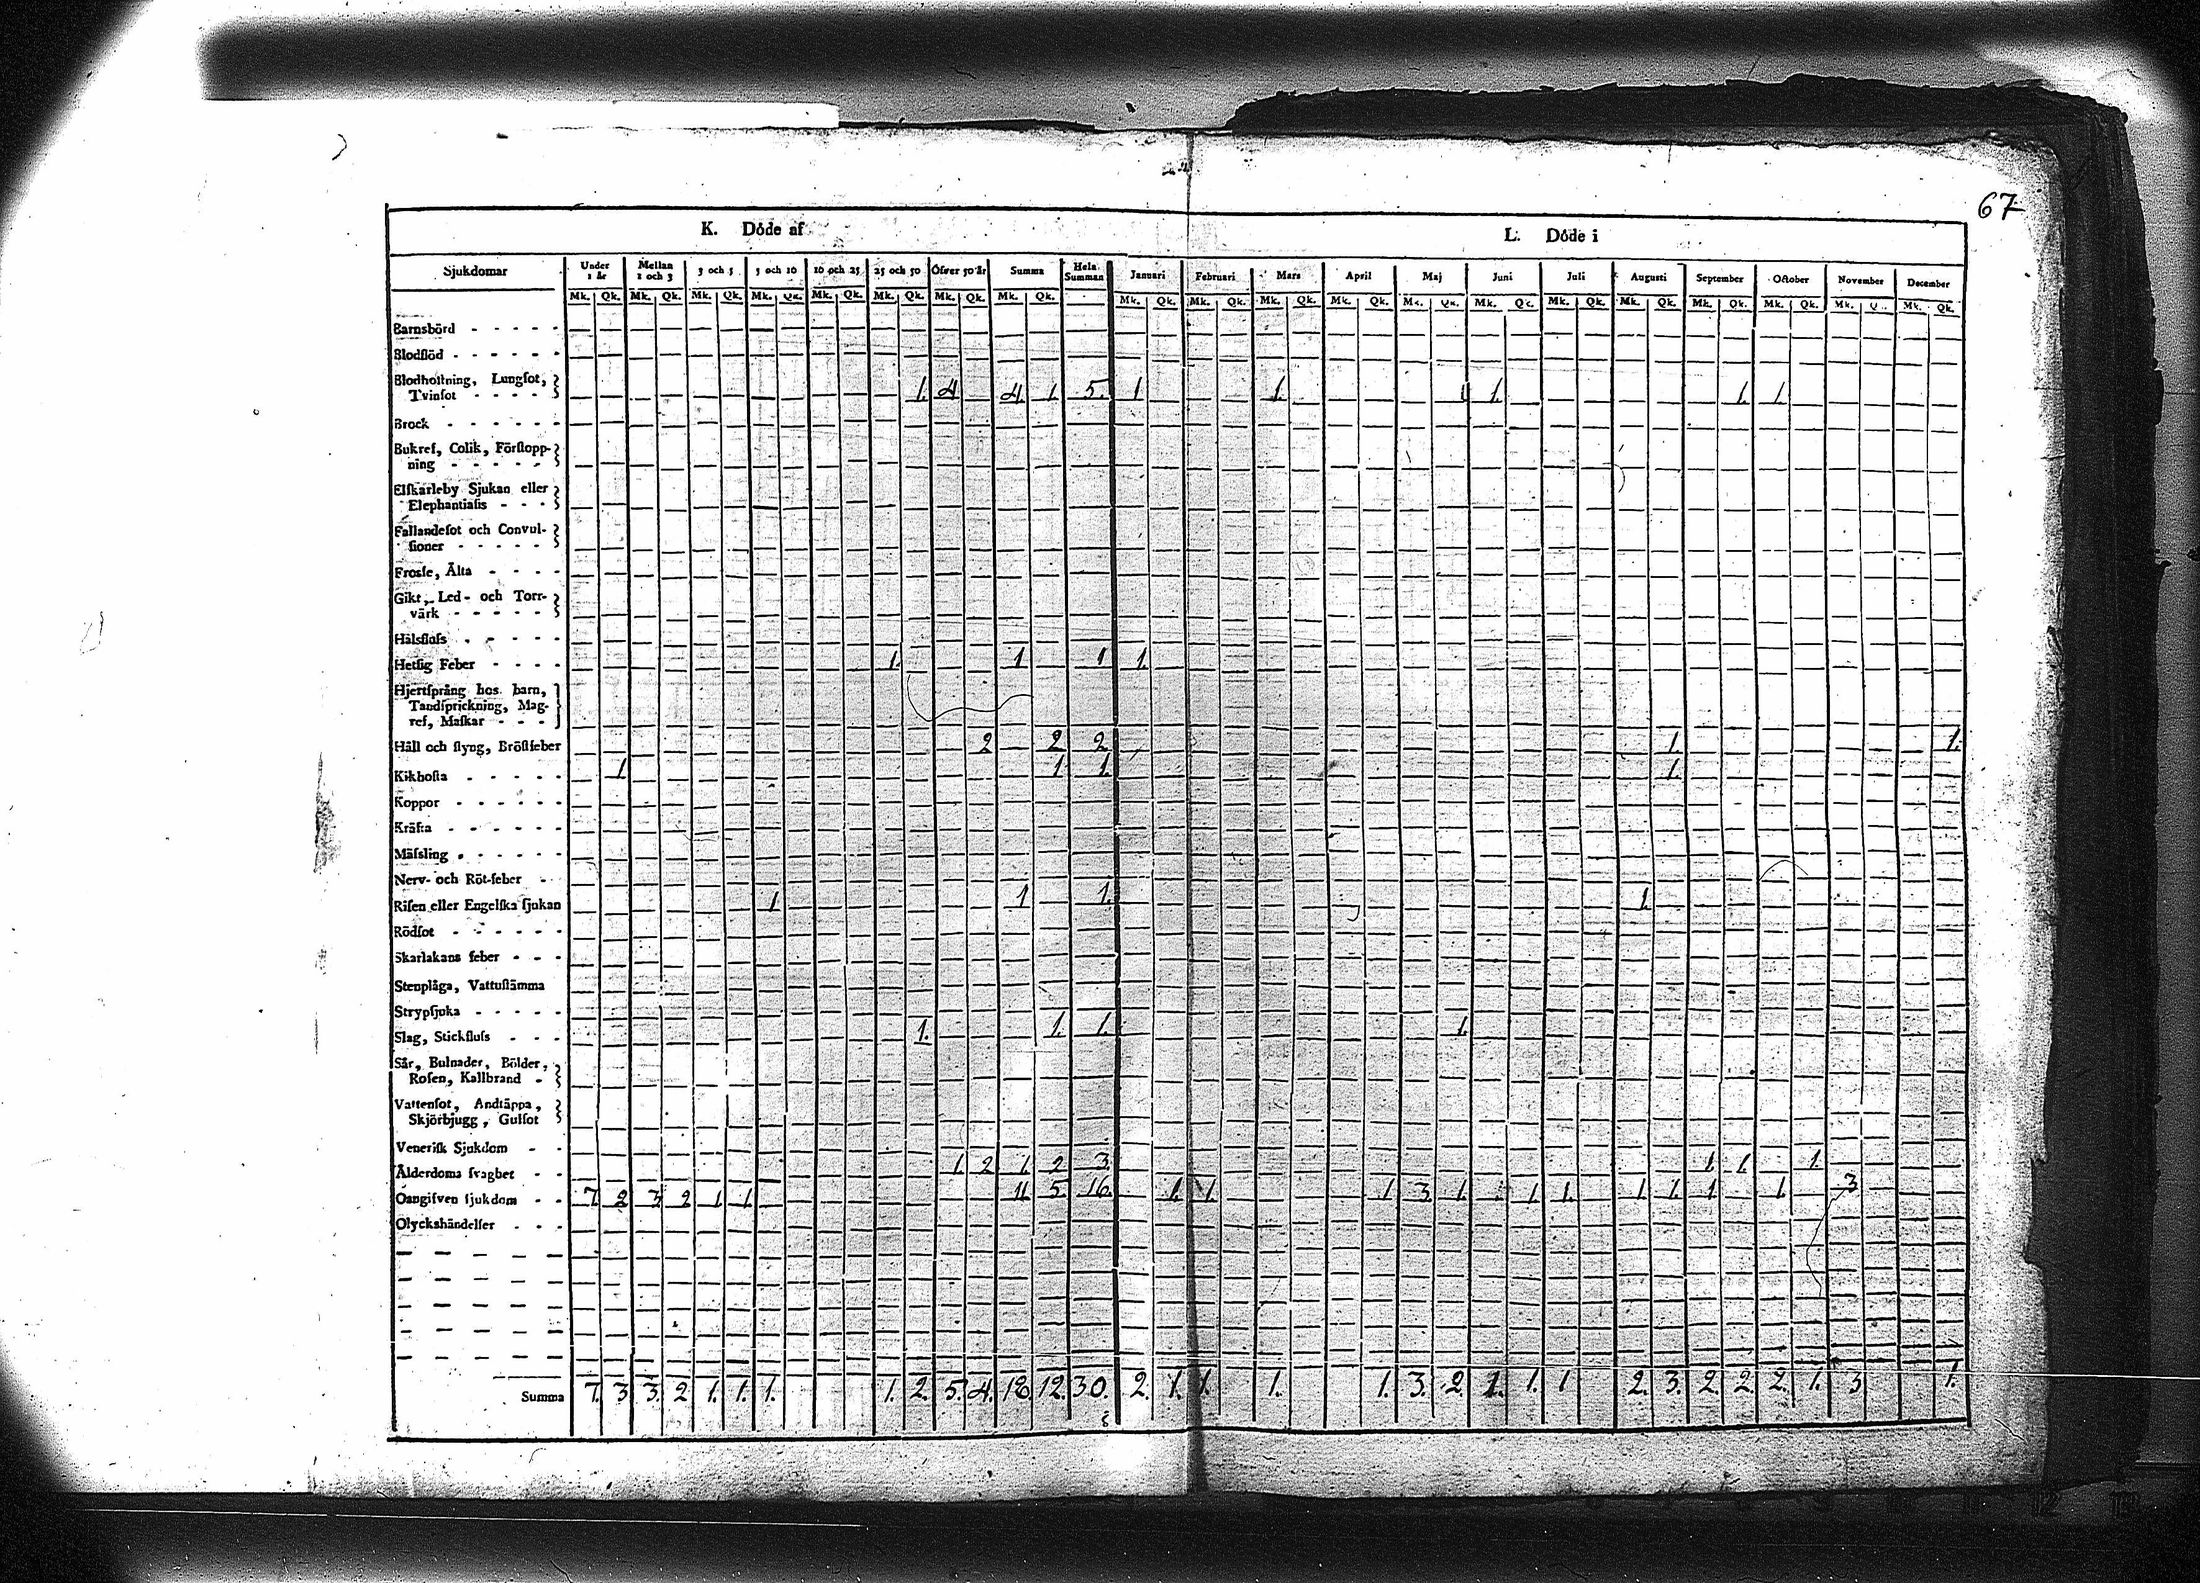 67
K. Döde af
L. Döde i
Sjukdomar Under 1 år Mellan 1 och 3 3 och 5 5 och 10 10 och 25 25 och 50 Öfver 50 år Summa Hela Summan Januari Februari Mars April Maj Juni Juli Augusti September October November December
Mk. Qk. Mk. Qk. Mk. Qk. Mk. Qk. Mk. Qk. Mk. Qk. Mk. Qk. Mk. Qk. Mk. Qk. Mk. Qk. Mk. Qk. Mk. Qk. Mk. Qk. Mk. Qk. Mk. Qk. Mk. Qk. Mk. Qk. Mk. Qk. Mk. Q. Mk. Qk.
Barnsbörd
Blodflöd
Blodhostning, Lungsot,
Tvinsot 1. 4 4 1. 5. 1 1. 1 1. 1. 1.
Brock
Bukref, Colik, Förstopp-
ning
Elfkarleby Sjukan eller
Elephantiasis
Fallandesot och Convul-
sioner
Frosse, Älta
Gikt, Led- och Torr-
värk
Halsfluss
Hetsig Feber 1. 1 1 1.
Hjertsprång hos barn,
Tandsprickning, Mag-
ref, Maskar
Håll och styng, Bröstfeber 2 2 2 1. 1.
Kikhosta 1 1 1. 1.
Koppor
Kräfta
Mässling
Nerv- och Röt-feber
Risen eller Engelska sjukan 1 1 1. 1.
Rödsot
Skarlakans feber
Stenplåga, Vattustämma
Strypsjuka
Slag, Stickfluss 1. 1. 1. 1.
Sår, Bulnader, Bölder,
Rosen, Kallbrand
Vattensot, Andtäppa,
Skjörbjugg, Gulsot
Venerisk Sjukdom
Ålderdoms svaghet 1. 2 1. 2 3. 1. 1. 1.
Oangifven sjukdom 7. 2 3. 2 1. 1. 11 5. 16. 1. 1. 1. 3. 1. 1. 1. 1. 1. 1. 1. 3
Olyckshändelser
Summa 7. 3 3. 2 1. 1. 1. 1. 2. 5. 4. 18. 12. 30. 2. 1. 1. 1. 1. 3. 2. 1. 1. 1 2. 3. 2. 2. 2. 1. 3 1.